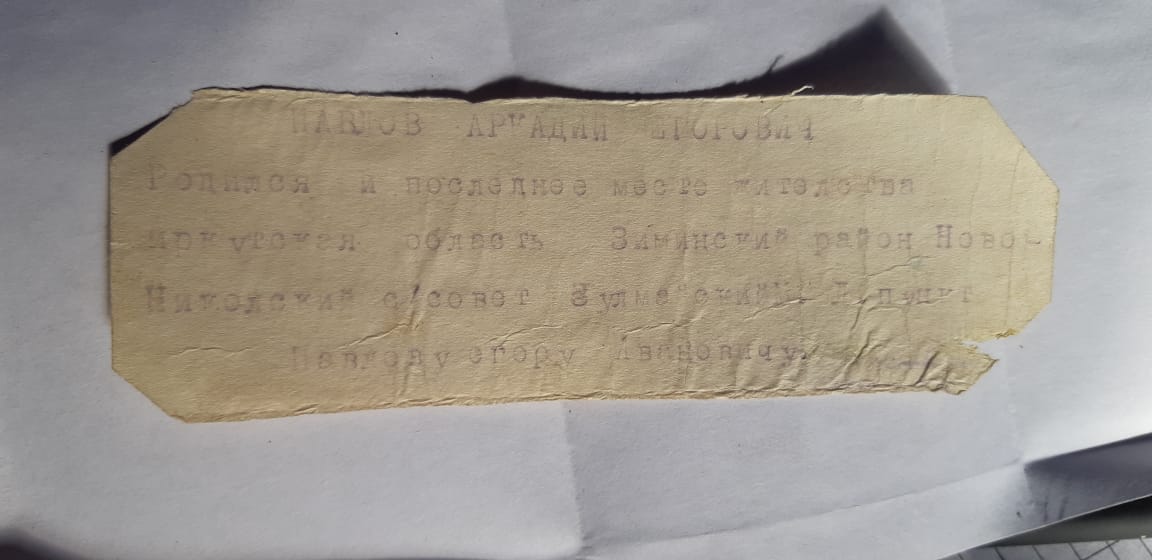 ПАВЛОВ АРКАДИЙ ЕГОРОВИЧ
Родился и последнее месте жителства
Иркутская область Зиминский район Ново-
Николский с/совет
Павлову егору Ивановичу